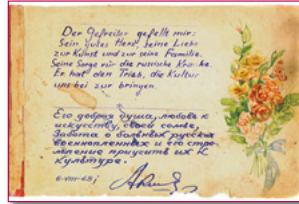 Der Gefreiter gefellt mir:
Sein gutes Herz, seine Liebe
zur Kunst und zur seine Familie.
Seine Sorge für die russische Kranke.
Er hat den Trieb, die Kultur
uns bei zur bringen.
Его добрая душа, любовь к
искусству, своей семье,
Забота о больных русских
военнопленных и его стре-
мление приучить их к
культуре.